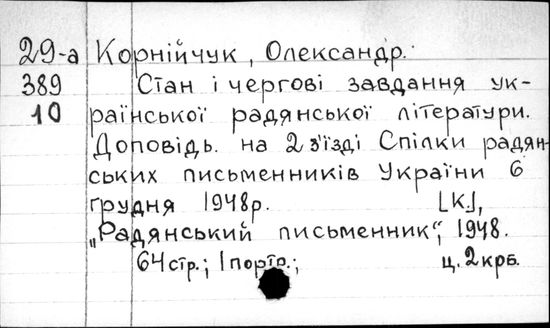 29-а Корнійчук, Олександр.
389 Стан і чергові завдання ук-
10 раїнської радянської літератури.
Доповідь. на 2 з'їзді Спілки радян-
ських письменників України 6
грудня 1948р. [К.],
„Радянський письменник", 1948.
64 стр.; 1 портр.; ц. 2 крб.